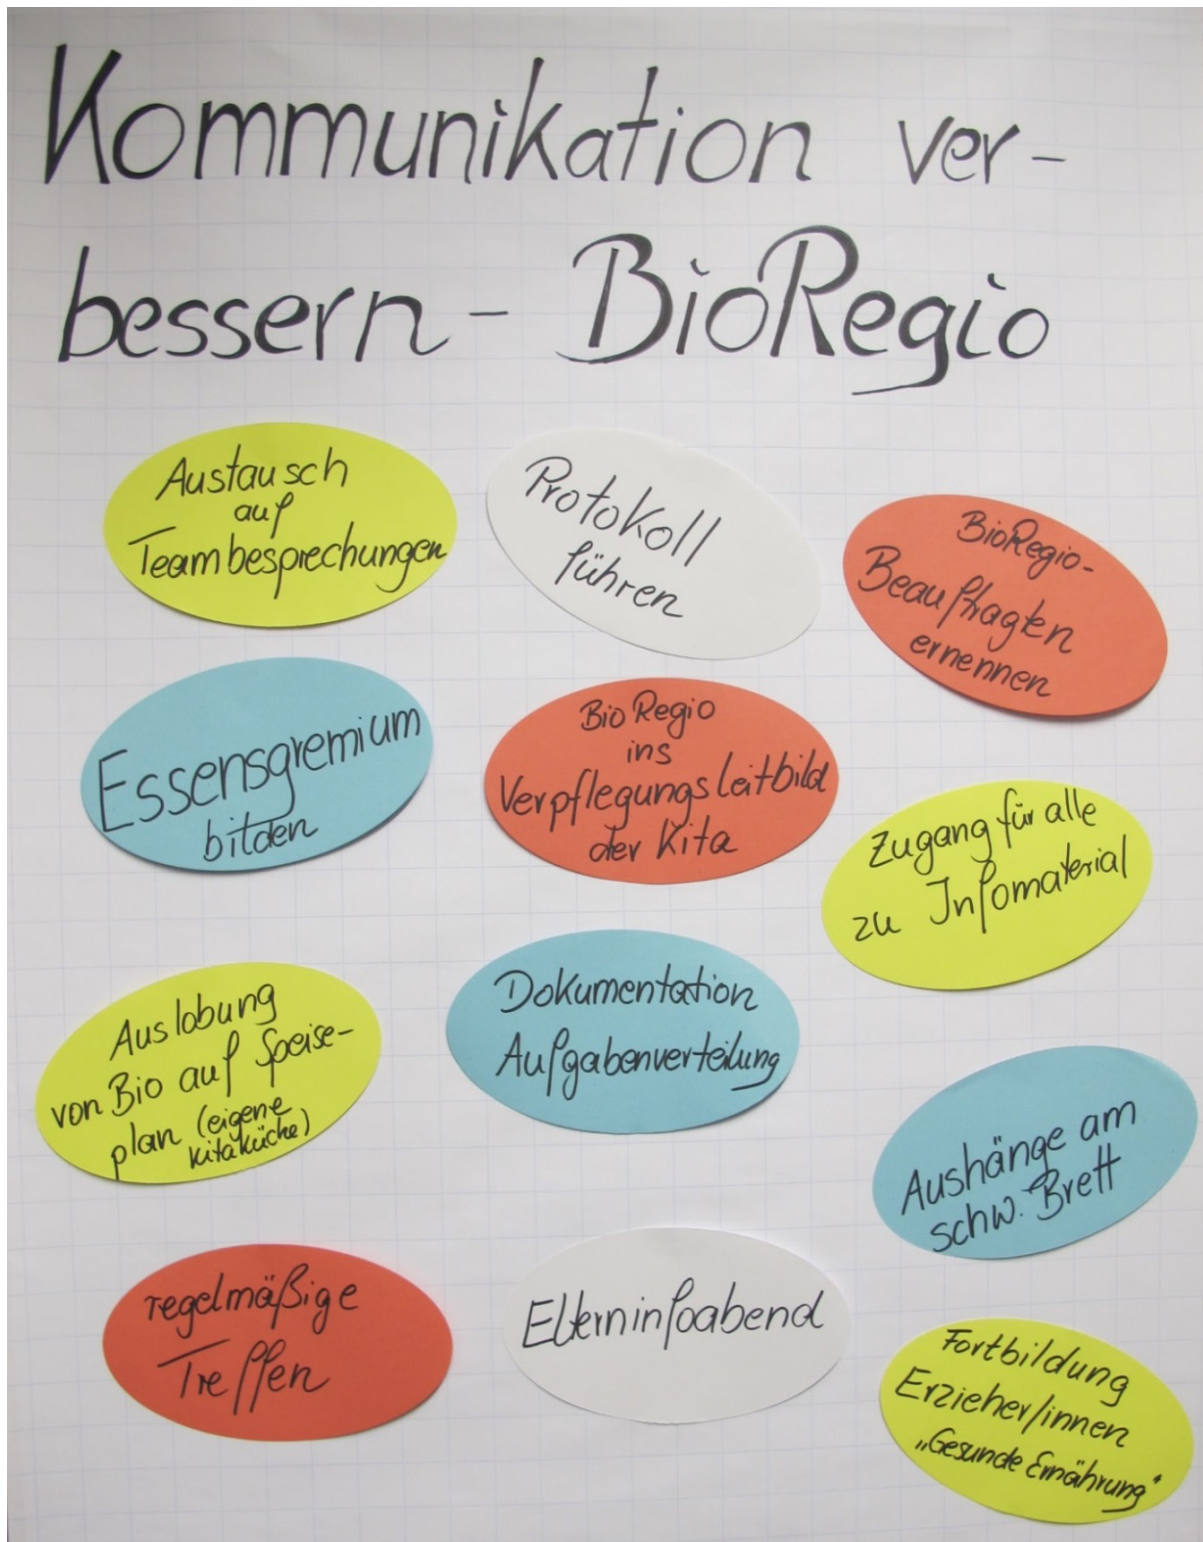 Kommunikation ver-
bessern - BioRegio
Austausch
auf
Teambesprechungen
Protokoll
führen
BioRegio-
Beauftragten
ernennen
Essensgremium
bilden
BioRegio
ins
Verpflegungsleitbild
der Kita
Zugang für alle
zu Infomaterial
Auslobung
von Bio auf Speise-
plan (eigene
Kitaküche)
Dokumentation
Aufgabenverteilung
Aushänge am
schw. Brett
regelmäßige
Treffen
Elterninfoabend
Fortbildung
Erzieher/innen
„Gesunde Ernährung"